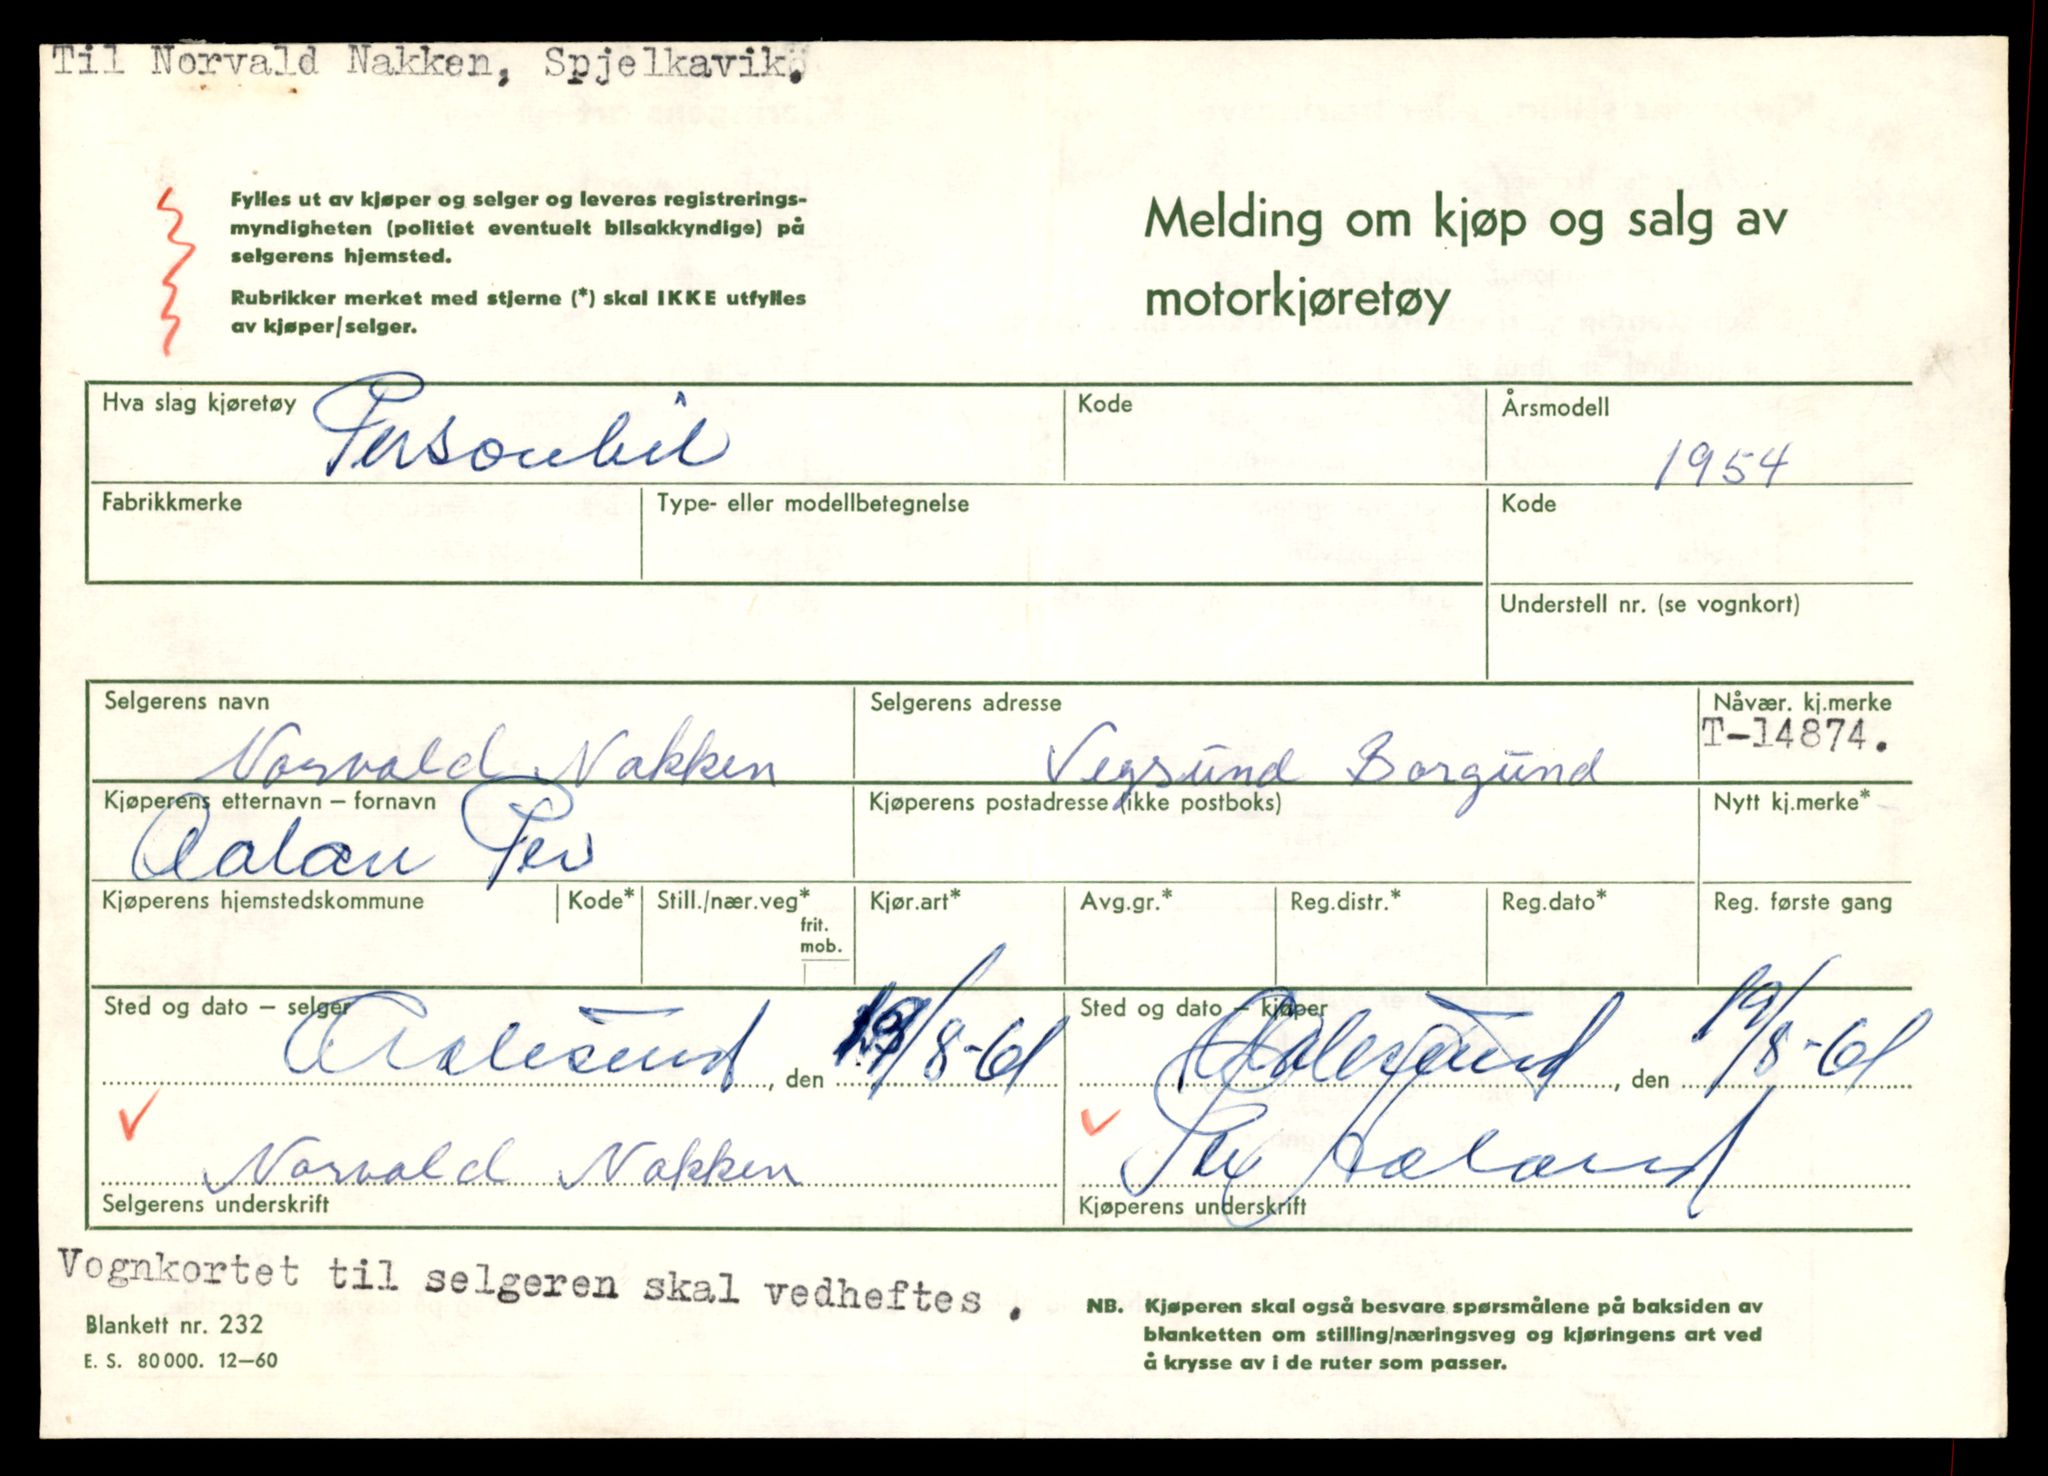 Til Norvald Nakken, Spjelkavik.
Fylles ut av kjøper og selger og leveres registrerings-
myndigheten (politiet eventuelt bilsakkyndige) på
selgerens hjemsted.
Rubrikker merket med stjerne (*) skal IKKE utfylles
av kjøper/selger.
Melding om kjøp og salg av
motorkjøretøy
Hva slag kjøretøy Personbil
Kode
Årsmodell
1954
Fabrikkmerke
Type- eller modellbetegnelse
Kode
Understell nr. (se vognkort)
Selgerens navn
Norvald Nakken
Selgerens adresse
Vegsund Borgund
Nåvær. kj.merke
T-14874.
Kjøperens etternavn – fornavn
Aalan Per
Kjøperens postadresse (ikke postboks)
Nytt kj.merke*
Kjøperens hjemstedskommune
Kode*
Still./nær.veg*
frit.
mob.
Kjør.art*
Avg.gr.*
Reg.distr.*
Reg.dato*
Reg. første gang
Sted og dato – selger
Aalesund, den 19/8-61
Sted og dato – kjøper
Aalesund, den 19/8-61
Norvald Nakken
Selgerens underskrift
Per Aaland
Kjøperens underskrift
Vognkortet til selgeren skal vedheftes .
Blankett nr. 232
E. S. 80000. 12–60
NB. Kjøperen skal også besvare spørsmålene på baksiden av
blanketten om stilling/næringsveg og kjøringens art ved
å krysse av i de ruter som passer.